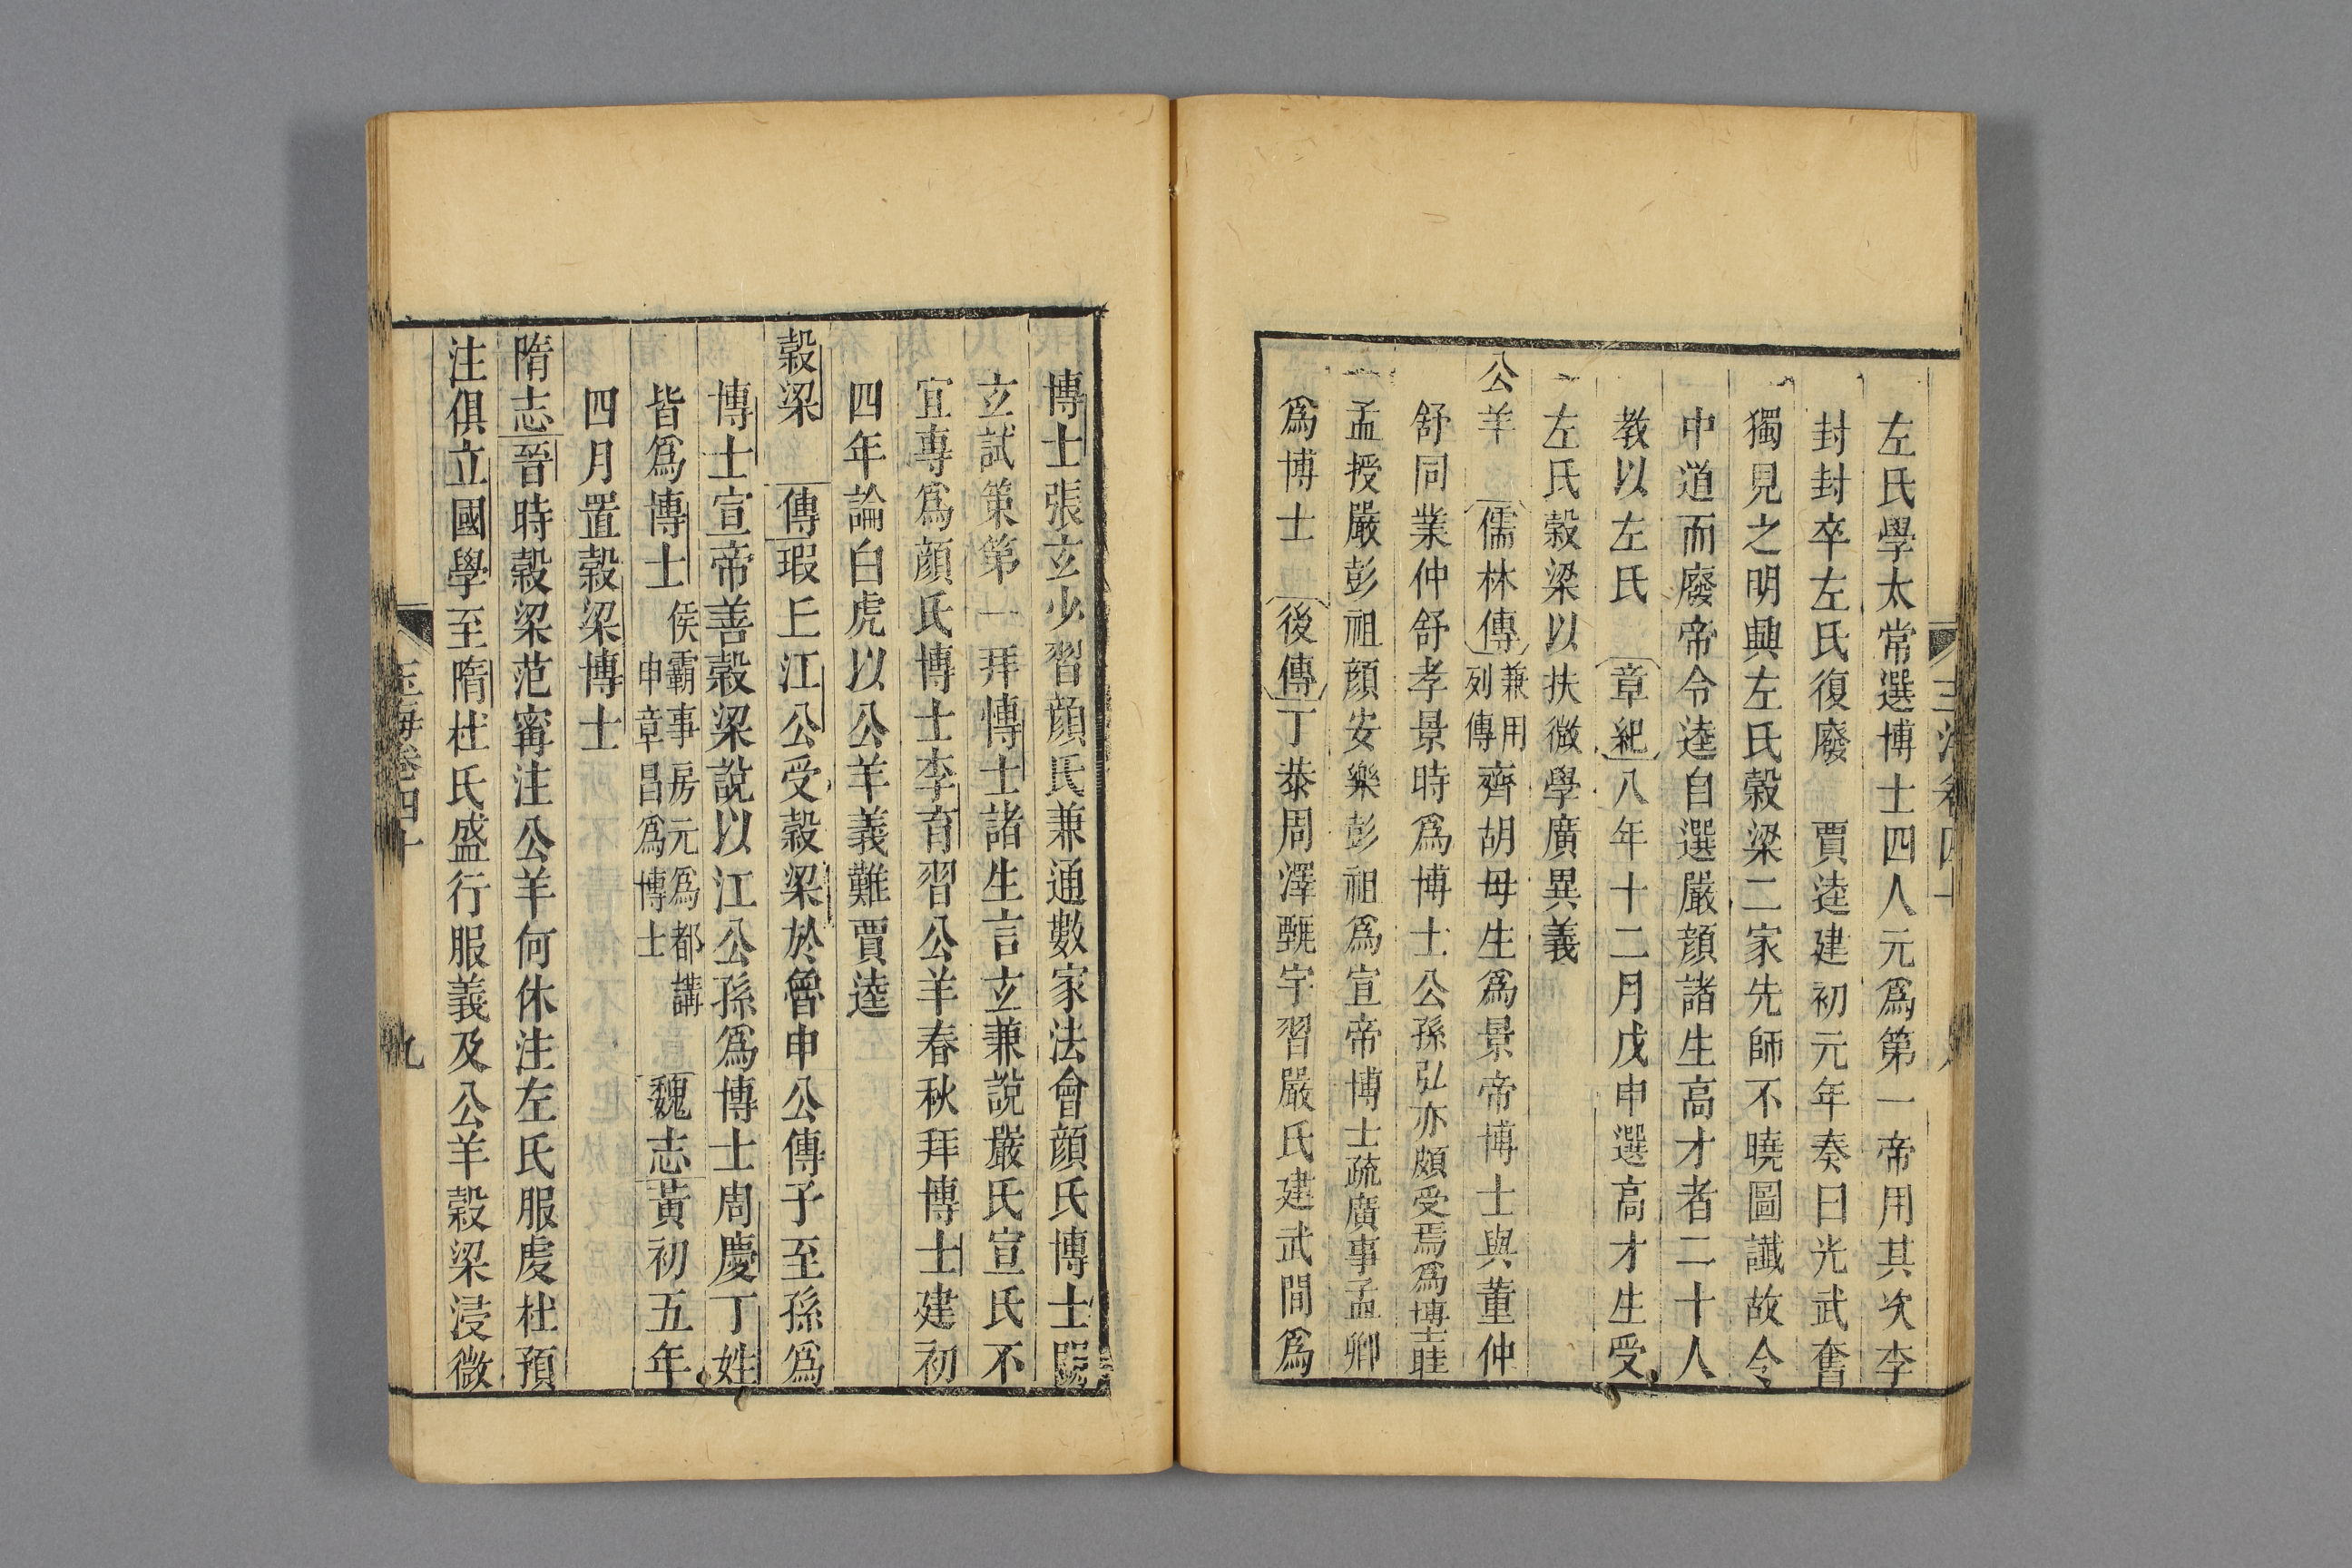 左氏學太常選博士四人元爲第一帝用其次李
封封卒左氏復廢　賈逵建初元年奏曰光武奮
獨見之明興左氏穀梁二家先師不曉圖讖故令
中道而廢帝令逵自選嚴顔諸生高才者二十人
教以左氏　章紀八年十二月戊申選高才生受
左氏穀梁以扶微學廣異義
公羊　儒林傳兼用列傳齊胡毋生爲景帝博士與董仲
舒同業仲舒孝景時爲博士公孫弘亦頗受焉爲博士眭
孟授嚴彭祖顔安樂彭祖爲宣帝博士疏廣事孟卿
爲博士　後傳丁恭周澤甄宇習嚴氏建武間爲
博士張玄少習顔氏兼通數家法會顔氏博士
玄試策第一拜博士諸生言玄兼說嚴氏宣氏不
宜專爲顔氏博士李育習公羊春秋拜博士建初
四年論白虎以公羊義難賈逵
穀梁　傳瑕丘江公受穀梁於魯申公傳子至孫爲
博士宣帝善穀梁說以江公孫爲博士周慶丁姓
皆爲博士侯霸事房元爲都講申章昌爲博士　魏志黃初五年
四月置穀梁博士
隋志晉時穀梁范甯注公羊何休注左氏服虔杜預
注俱立國學至隋杜氏盛行服義及公羊穀梁浸微
玉海卷四十　九